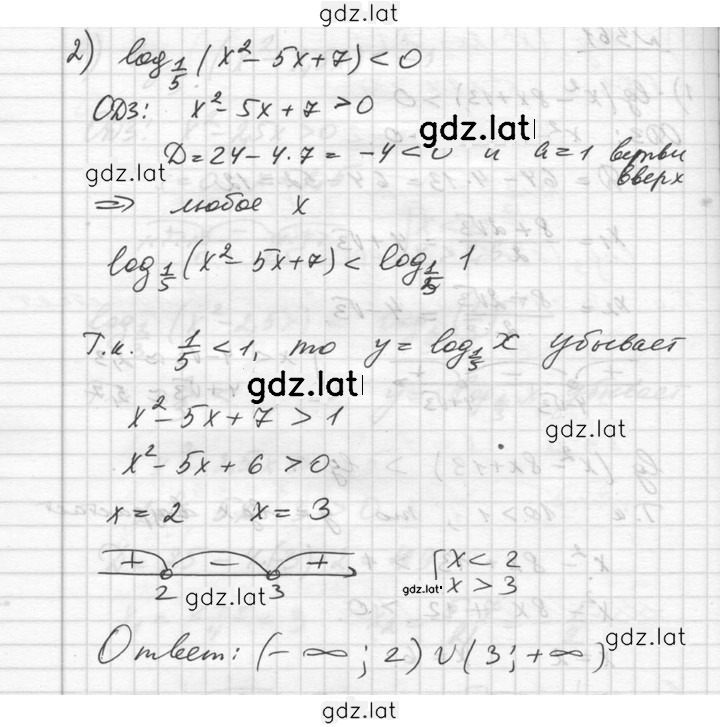 gdz.lat
2) log_{1/5} (x² - 5x + 7) < 0
ОДЗ: x² - 5x + 7 > 0
gdz.lat
D = 24 - 4·7 = -4 < 0 и a = 1 ветви вверх
gdz.lat
=> любое x
log_{1/5} (x² - 5x + 7) < log_{1/5} 1
Т.к. 1/5 < 1, то y = log_{1/5} x убывает
gdz.lat
x² - 5x + 7 > 1
gdz.lat
x² - 5x + 6 > 0
x = 2 x = 3
+ - +
2 3
gdz.lat
[ x < 2
gdz.lat
x > 3
gdz.lat
Ответ: (-∞; 2) ∪ (3; +∞)
gdz.lat